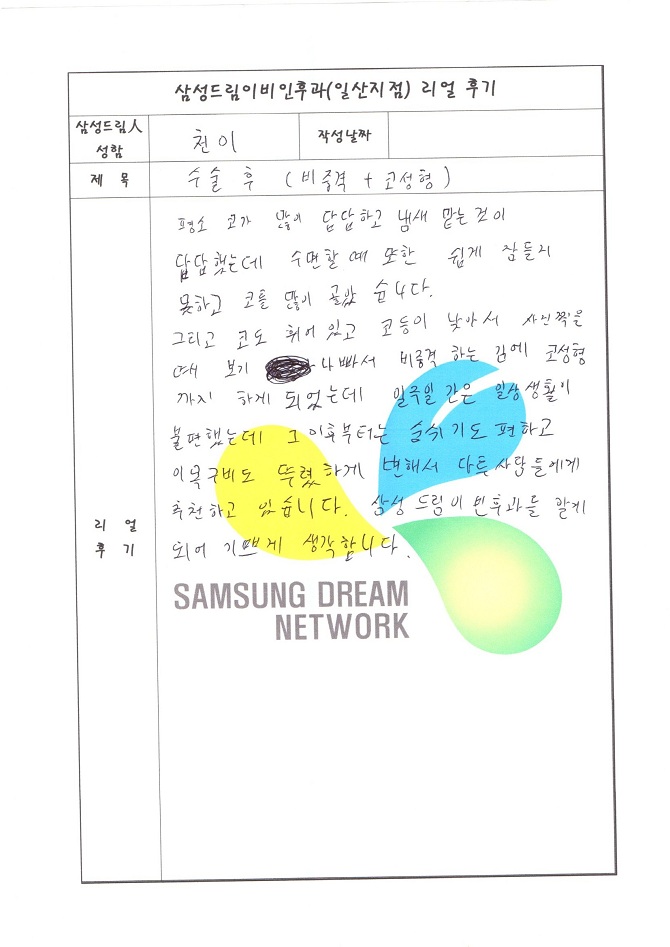 삼성드림이비인후과(일산지점) 리얼 후기
삼성드림人 성함
천이
작성날짜
제 목
수술 후 (비중격 + 코성형)
평소 코가 많이 답답하고 냄새 맡는것이
답답했는데 수면할 때 또한 쉽게 잠들지
못하고 코를 많이 골았 습니다.
그리고 코도 휘어 있고 코등이 낮아서 사진찍을
때 보기 나빠서 비중격 하는 김에 코성형
까지 하게 되었는데 일주일 간은 일상생활이
불편했는데 그 이후부터는 숨쉬기도 편하고
이목구비도 뚜렸하게 변해서 다른사람들에게
추천하고 있습니다. 삼성 드림이빈후과를 알게
되어 기쁘게 생각합니다.
리 얼
후 기
SAMSUNG DREAM
NETWORK